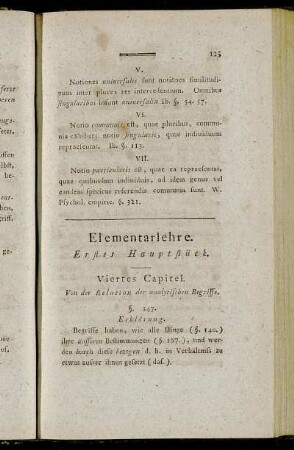 125
V.
Notiones universales sunt notitiae similitudi-
num inter plures res intercedentium. Omnibus
singularibus insunt universalia Ib. §. 54. 57.
VI.
Notio communis est, quae pluribus, commu-
nia exhibet; notio singularis, quae individuum
repraesentat. Ib. §. 113.
VII.
Notio particularis est, quae ea repraesentat,
quae quibusdam individuis, ad idem genus vel
eandem speciem referendis communia sunt. W.
Psychol. empiric. §. 321.
Elementarlehre.
Erstes Hauptstück.
Viertes Capitel.
Von der Relation der analytischen Begriffe.
§. 147.
Erklärung.
Begriffe haben, wie alle Dinge (§. 140.)
ihre äusseren Bestimmungen (§. 137.), und wer-
den durch diese bezogen d. h. in Verhältniss zu
etwas ausser ihnen gesetzt (das.).